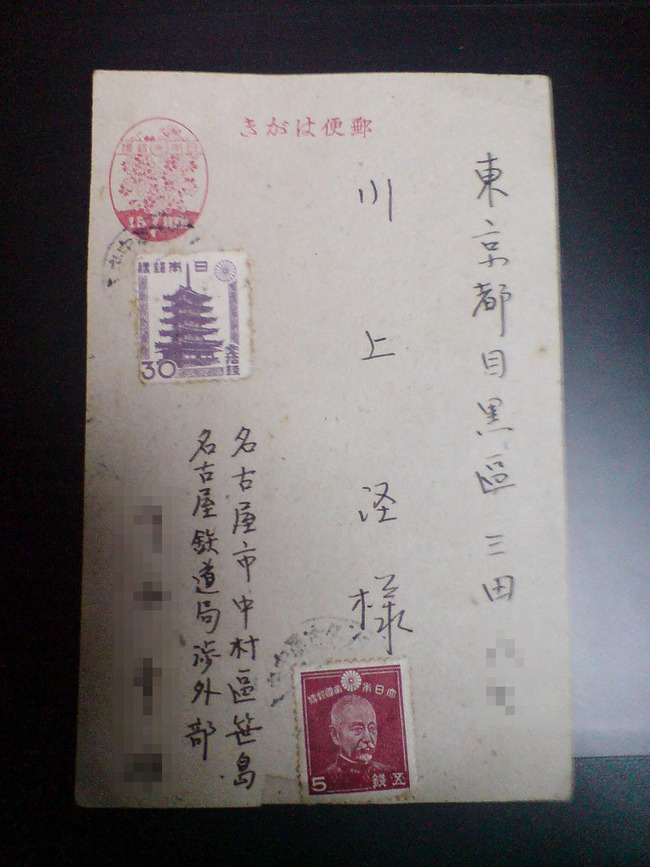 郵便はがき
東京都目黒區三田
川上 様
名古屋市中村區笹島
名古屋鉄道局渉外部
日本郵便
30
大日本帝國郵便
5
五銭